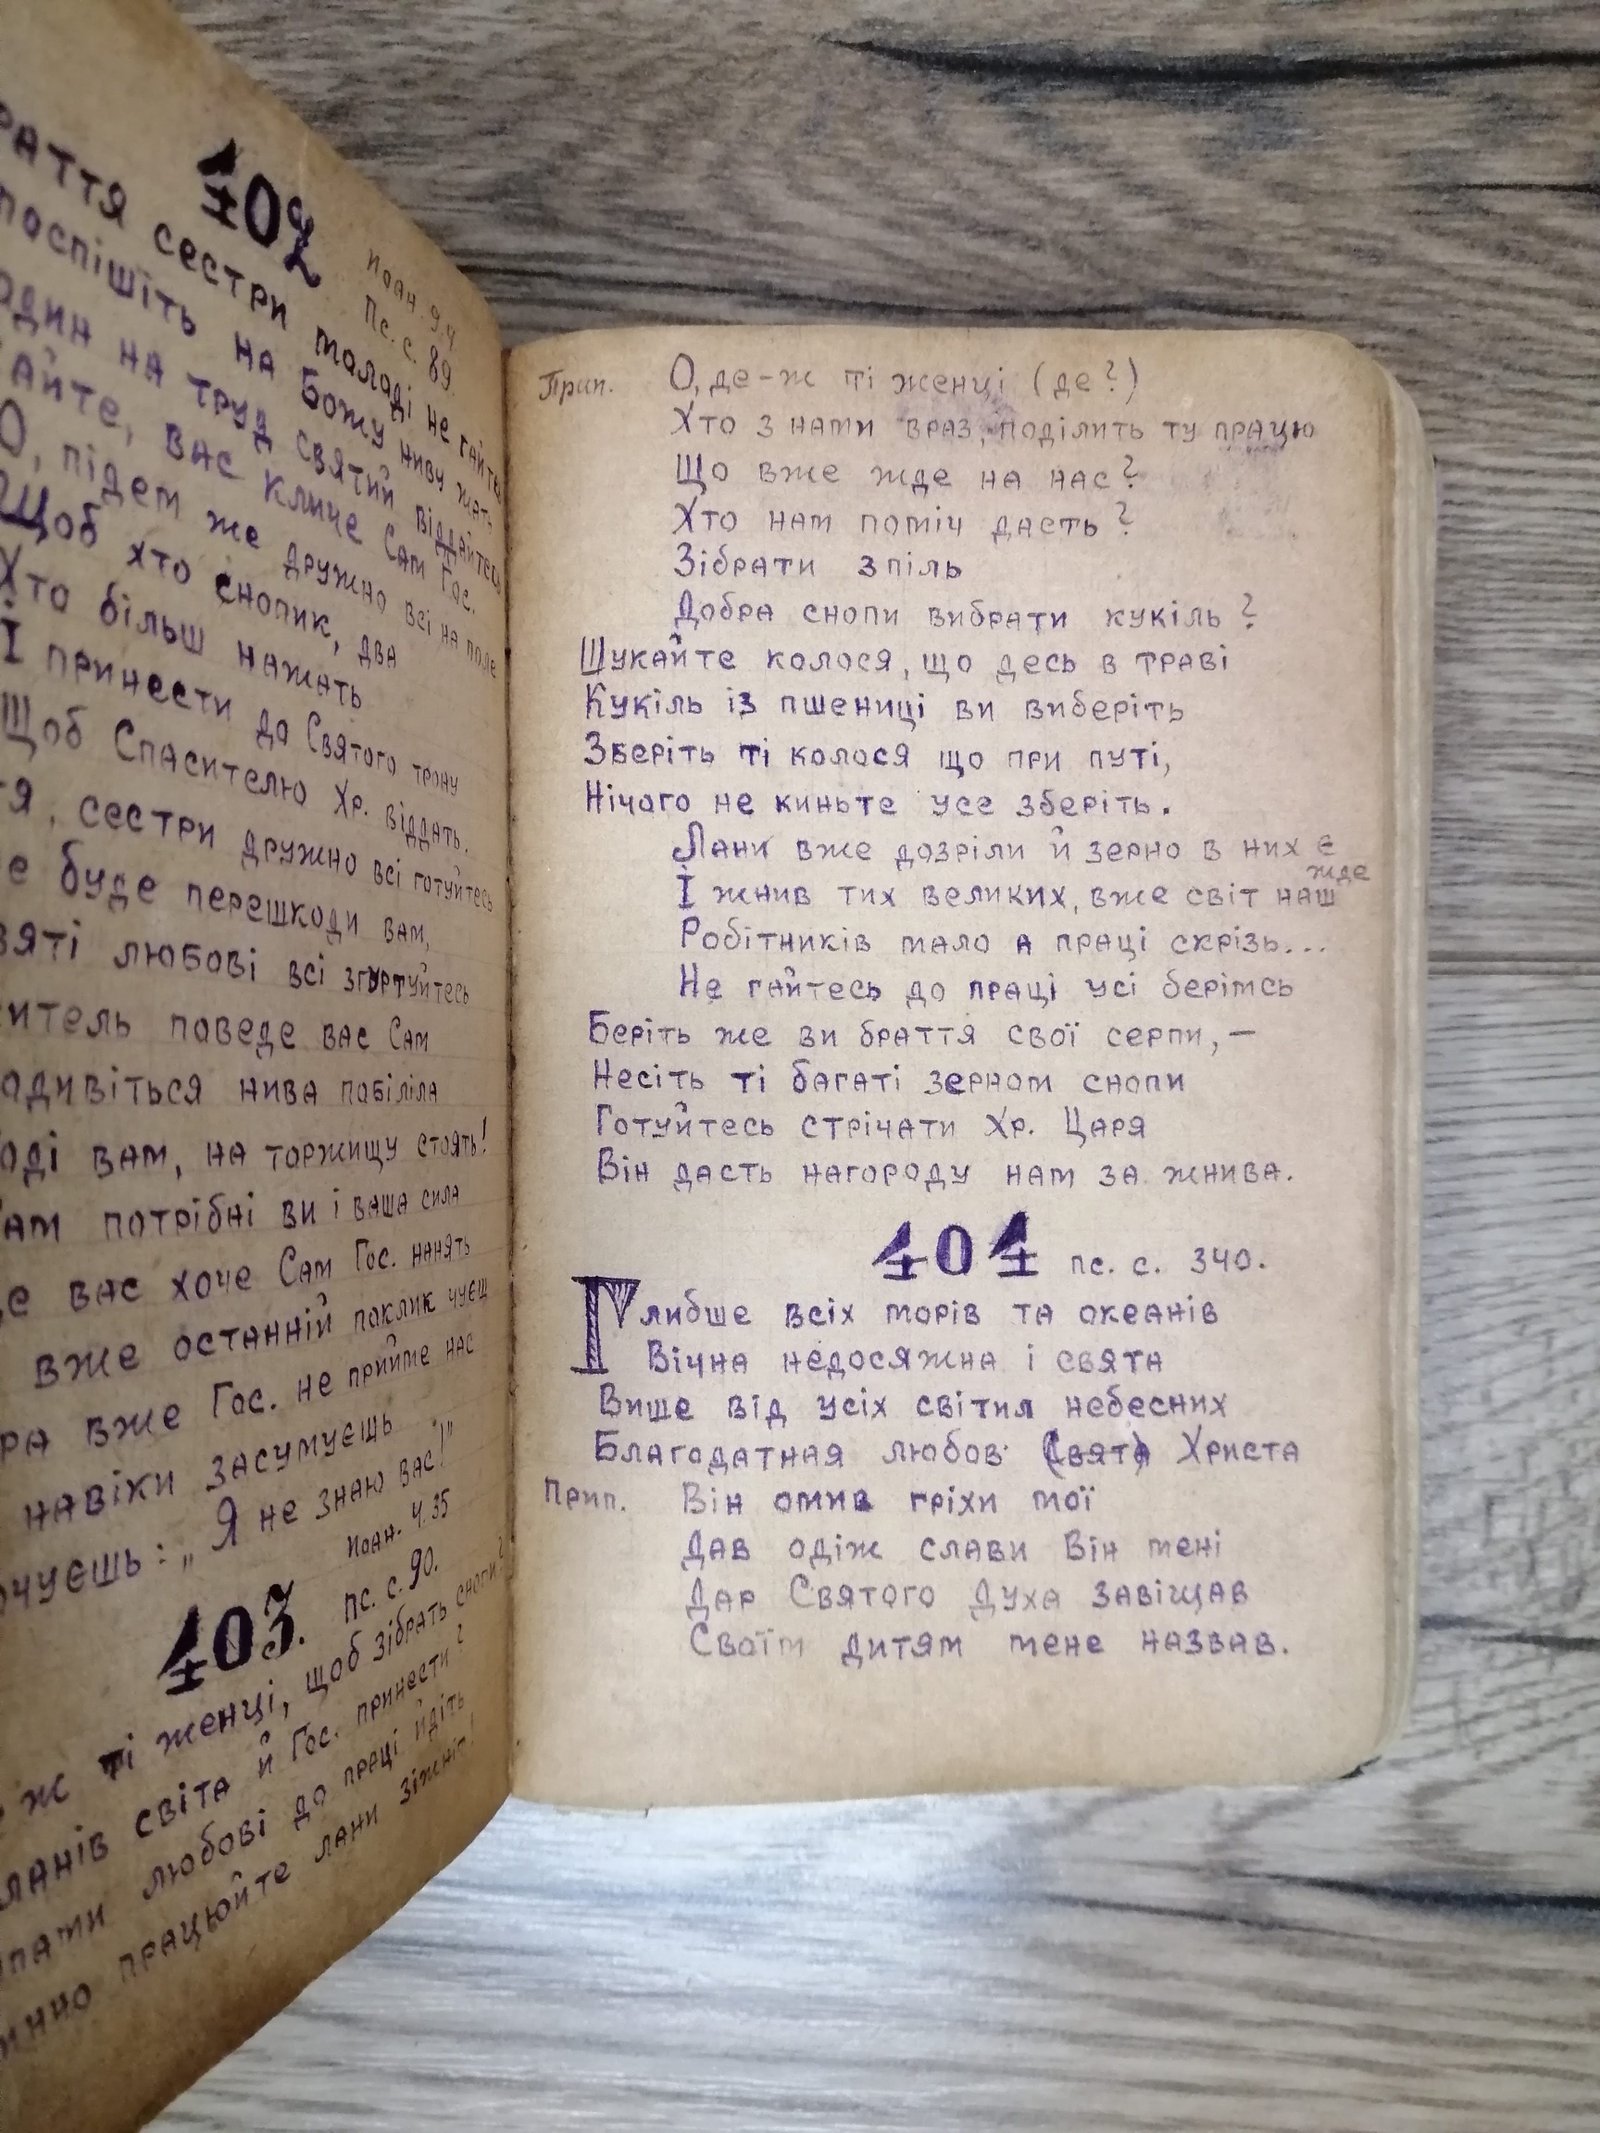 402
Иоан. 9.4
Пс. с. 89.
сестри молоді не гайтесь
поспішіть на Божу ниву жать,
один на труд святий віддайтесь
вас кличе Сам Гос.
О, підем же дружно всі на поле
Щоб хто снопик, два
Хто більш нажать
І принести до Святого трону
Щоб Спасителю Хр. віддать.
сестри дружно всі готуйтесь
буде перешкоди вам,
любові всі згуртуйтесь
поведе вас Сам
нива побіліла
вам, на торжищу стоять!
потрібні ви і ваша сила
вас хоче Сам Гос. нанять
вже останній поклик чуєш
вже Гос. не прийме нас
навіки засумуєшь
„Я не знаю вас!"
Иоан. 4.35
403. пс. с. 90.
ж ті женці, щоб зібрать снопи?
світа й Гос. принести?
любові до праці йдіть
працюйте лани зіжніт!
Прип. О, де-ж ті женці (де?)
Хто з нами враз, поділить ту працю
Що вже жде на нас?
Хто нам поміч дасть?
Зібрати з піль
Добра снопи вибрати кукіль?
Шукайте колося, що десь в траві
Кукіль із пшениці ви виберіть
Зберіть ті колося що при путі,
Нічого не киньте усе зберіть.
Лани вже дозріли й зерно в них є
жде
І жнив тих великих, вже світ наш
Робітників мало а праці скрізь...
Не гайтесь до праці усі берімсь
Беріть же ви браття свої серпи, –
Несіть ті багаті зерном снопи
Готуйтесь стрічати Хр. Царя
Він дасть нагороду нам за жнива.
404 пс. с. 340.
Глибше всіх морів та океанів
Вічна недосяжна і свята
Вище від усіх світил небесних
Благодатная любов (Свята) Христа
Прип. Він омив гріхи мої
Дав одіж слави Він мені
Дар Святого Духа завіщав
Своїм дитям мене назвав.